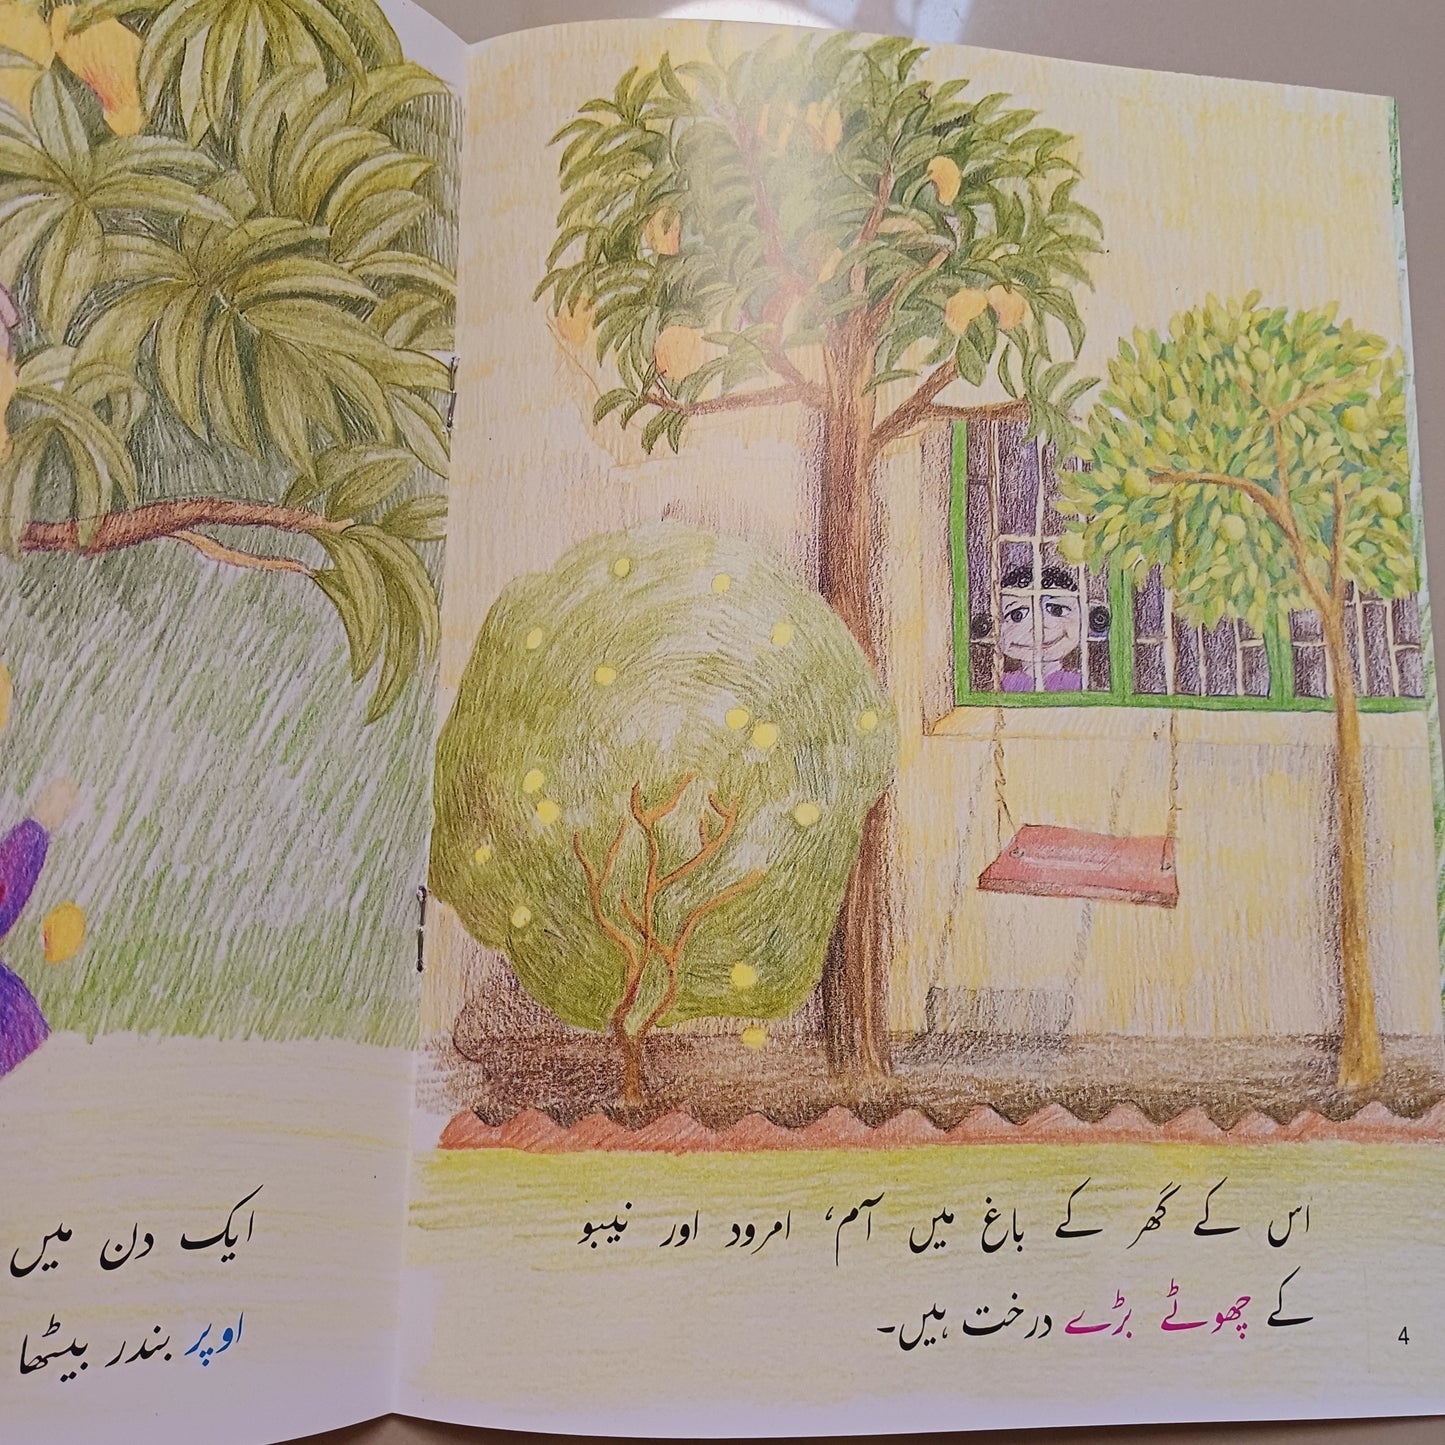 اس کے گھر کے باغ میں آم، امرود اور نیبو
کے چھوٹے بڑے درخت ہیں۔
4
ایک دن میں
اوپر بندر بیٹھا